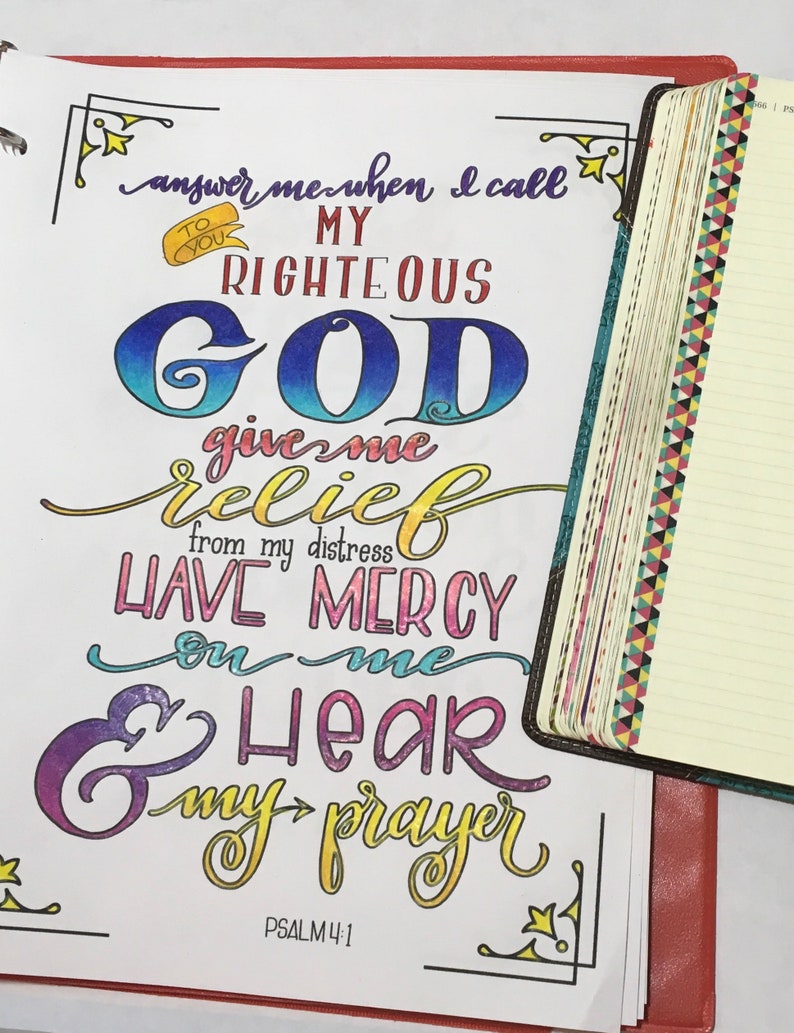 answer me when I call
TO
YOU
MY
RIGHTEOUS
GOD
give me
relief
from my distress
HAVE MERCY
on me
& HEAR
my prayer
PSALM 4:1
666 | PS